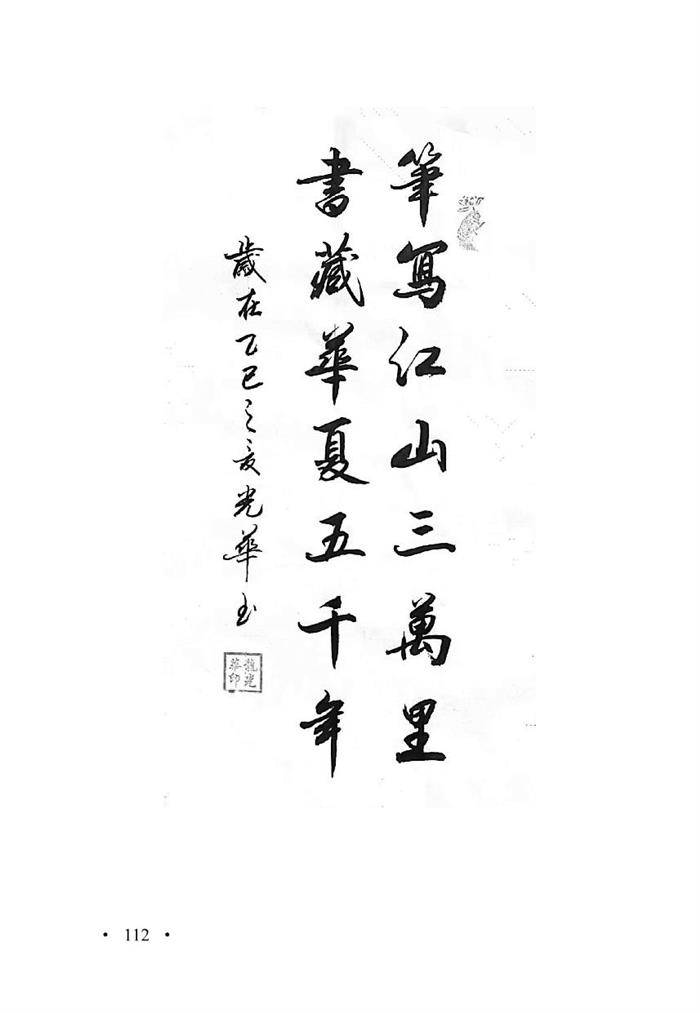 筆寫江山三萬里
書藏華夏五千年
歲在乙巳之夏光華书
龍光
華印
• 112 •